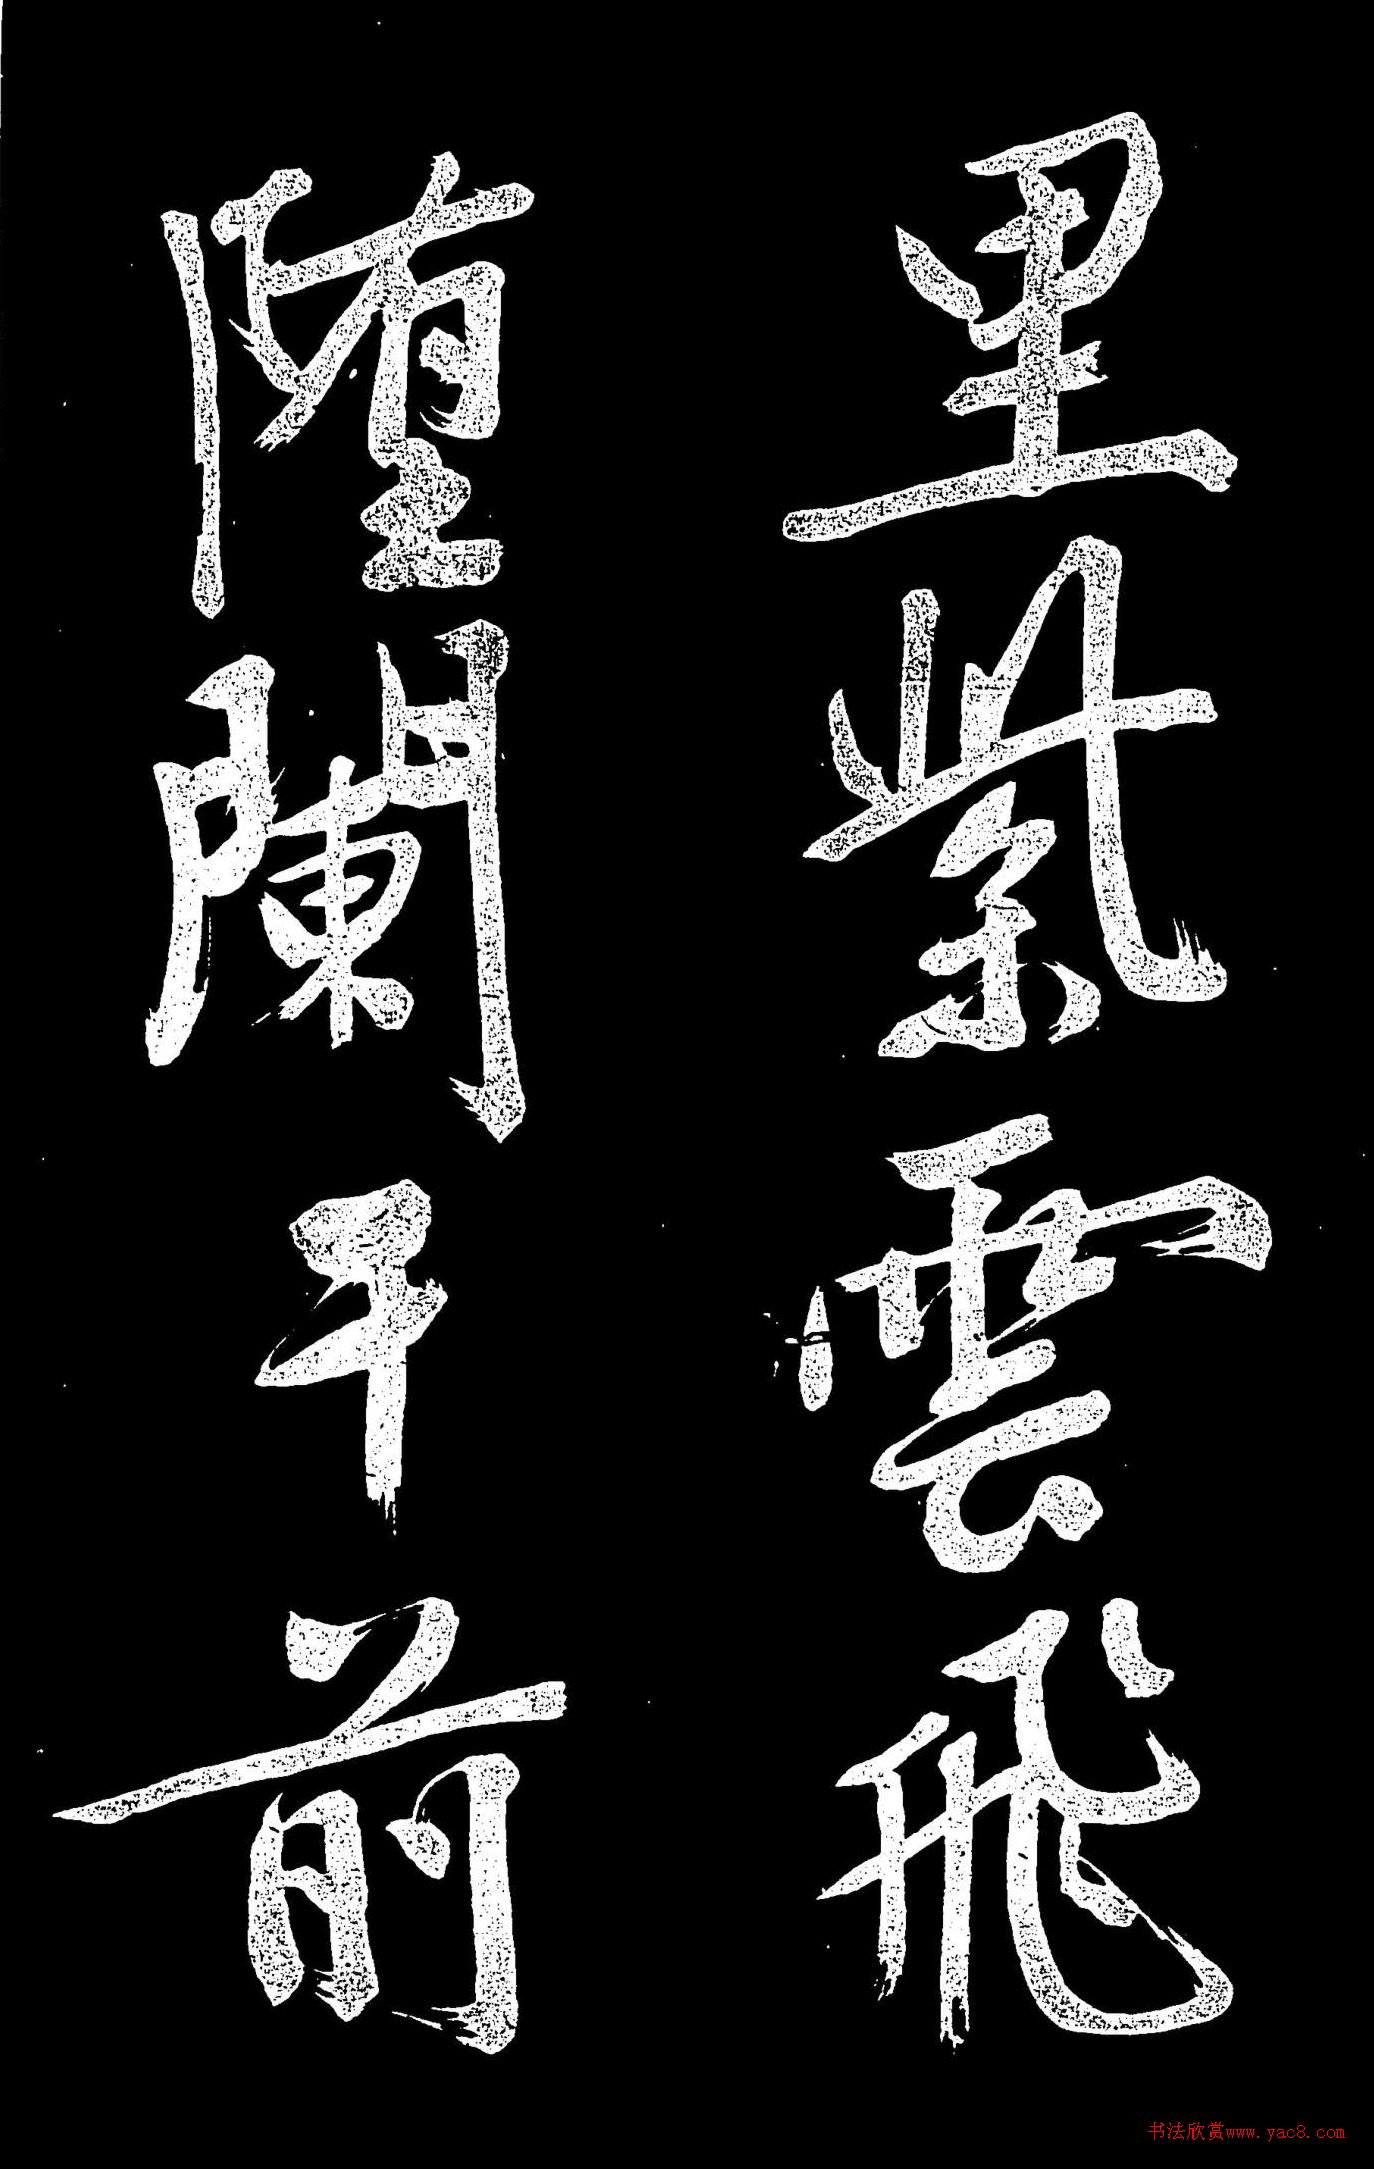 里紫雲飛
墮闌干前
书法欣赏www.yac8.com